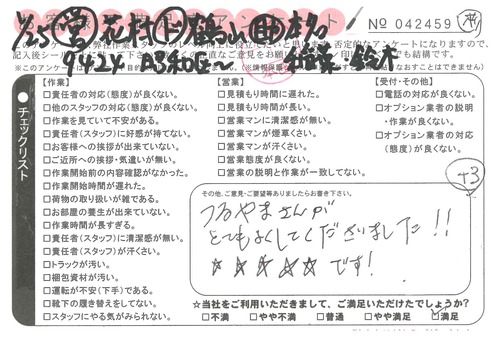 アンケート
No 042459
1/25 営 花村 下 鶴山 助
9424
鈴木
チェックリスト
【作業】
□責任者の対応(態度)が良くない。
□他のスタッフの対応(態度)が良くない。
□作業を見ていて不安がある。
□責任者(スタッフ)に好感が持てない。
□お客様への挨拶が出来ていない。
□ご近所への挨拶・気遣いが無い。
□作業開始前の内容確認がなかった。
□作業開始時間が遅れた。
□荷物の取り扱いが雑である。
□お部屋の養生が出来ていない。
□作業時間が長すぎる。
□責任者(スタッフ)に清潔感が無い。
□責任者(スタッフ)が汗くさい。
□トラックが汚い。
□梱包資材が汚い。
□運転が不安(下手)である。
□靴下の履き替えをしてない。
□スタッフにやる気がみられない。
【営業】
□見積もり時間に遅れた。
□見積もり時間が長い。
□営業マンに清潔感が無い。
□営業マンが煙草くさい。
□営業マンが汗くさい。
□営業態度が良くない。
□営業の説明と作業が一致してない。
【受付・その他】
□電話の対応が良くない。
□オプション業者の説明
・作業が良くない。
□オプション業者の対応
(態度)が良くない。
+3
その他、ご意見・ご要望等ありましたらお書き下さい。
つるやまさんが
とてもよくしてくださいました!!
☆☆☆☆☆です!
☆当社をご利用いただきまして、ご満足いただけたでしょうか?
□不満 □やや不満 □普通 □やや満足 □満足